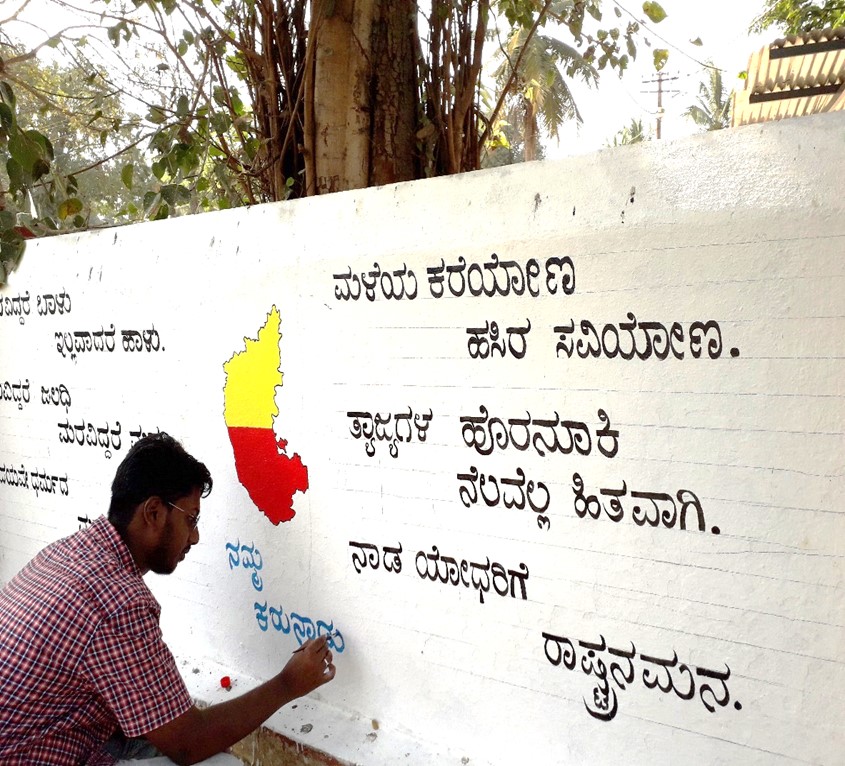 ಬಾಳು
ಇಲ್ಲವಾದರೆ ಹಾಳು.
ಜಲಧಿ
ಮರವಿದ್ದರೆ
ಧರ್ಮದ
ನಮ್ಮ
ಕರುನಾಡು
ಮಳೆಯ ಕರೆಯೋಣ
ಹಸಿರ ಸವಿಯೋಣ.
ತ್ಯಾಜ್ಯಗಳ ಹೊರನೂಕಿ
ನೆಲವೆಲ್ಲ ಹಿತವಾಗಿ.
ನಾಡ ಯೋಧರಿಗೆ
ರಾಷ್ಟ್ರನಮನ.